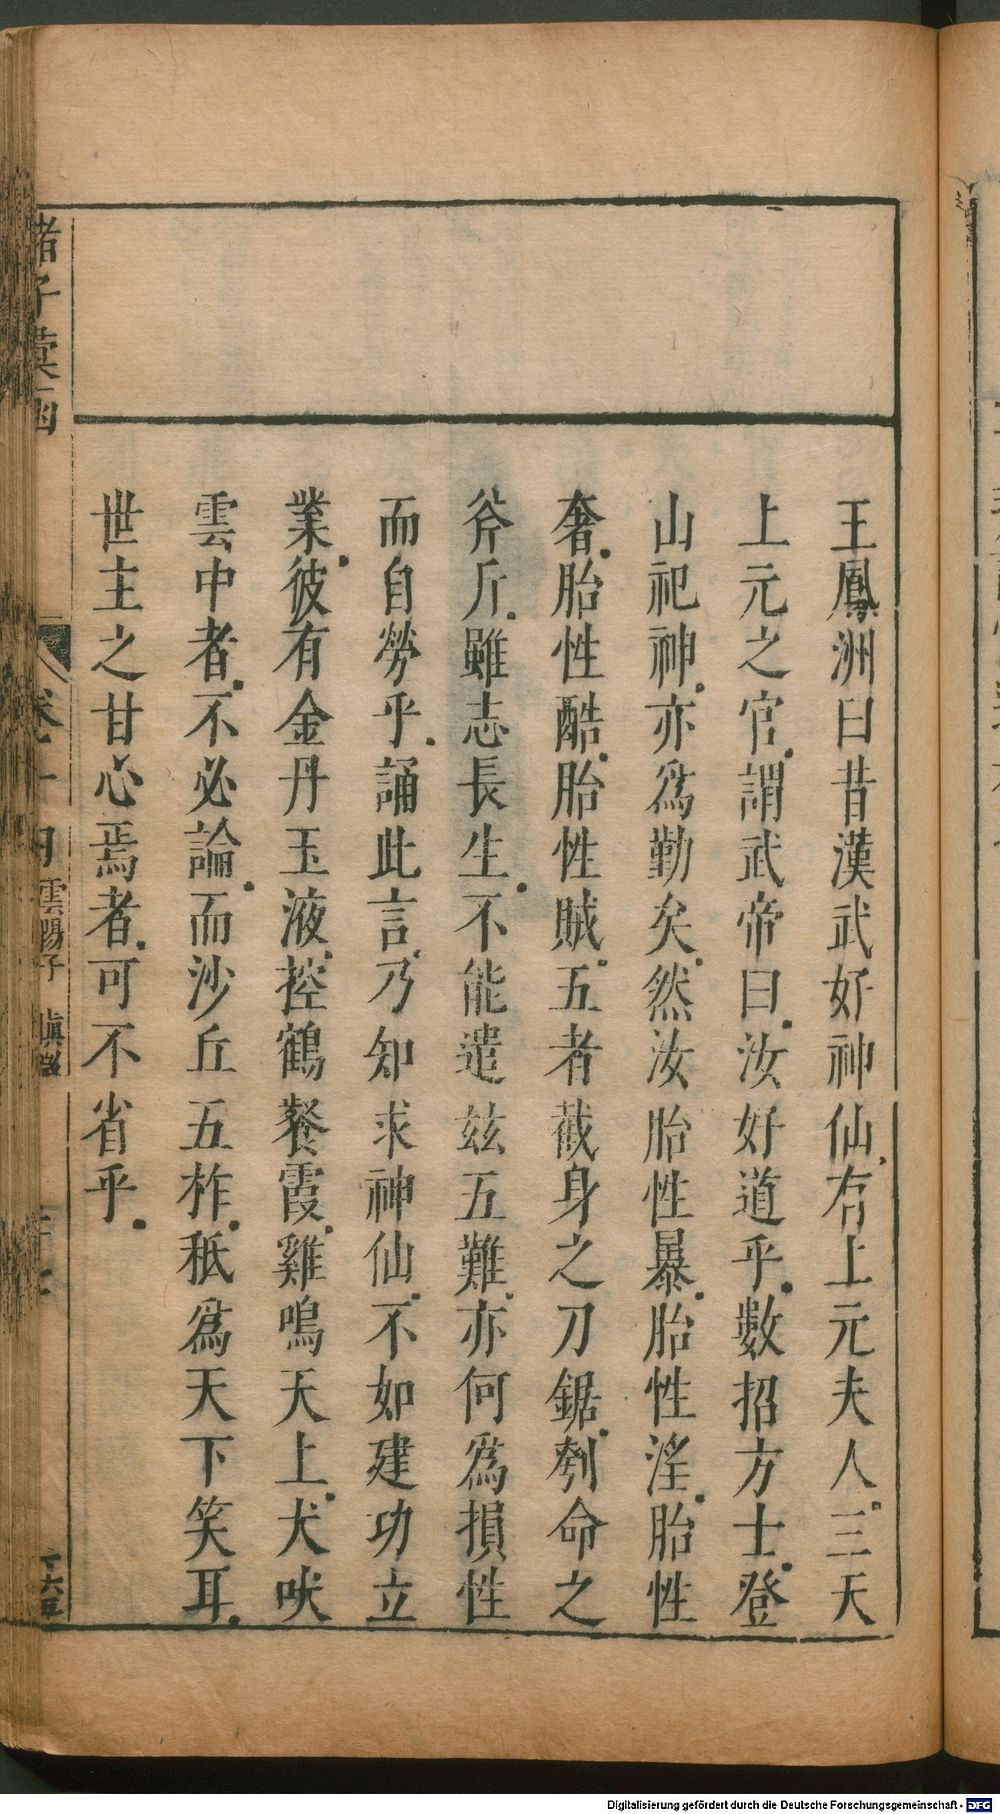 王鳳洲曰昔漢武好神仙有上元夫人三天
上元之官謂武帝曰汝好道乎數招方士登
山祀神亦爲勤矣然汝胎性暴胎性淫胎性
奢胎性酷胎性賊五者截身之刀鋸刳命之
斧斤雖志長生不能遣玆五難亦何爲損性
而自勞乎誦此言乃知求神仙不如建功立
業彼有金丹玉液控鶴餐霞雞鳴天上犬吠
雲中者不必論而沙丘五柞秪爲天下笑耳
世主之甘心焉者可不省乎
諸子彙函
雲陽子
Digitalisierung gefördert durch die Deutsche Forschungsgemeinschaft - DFG